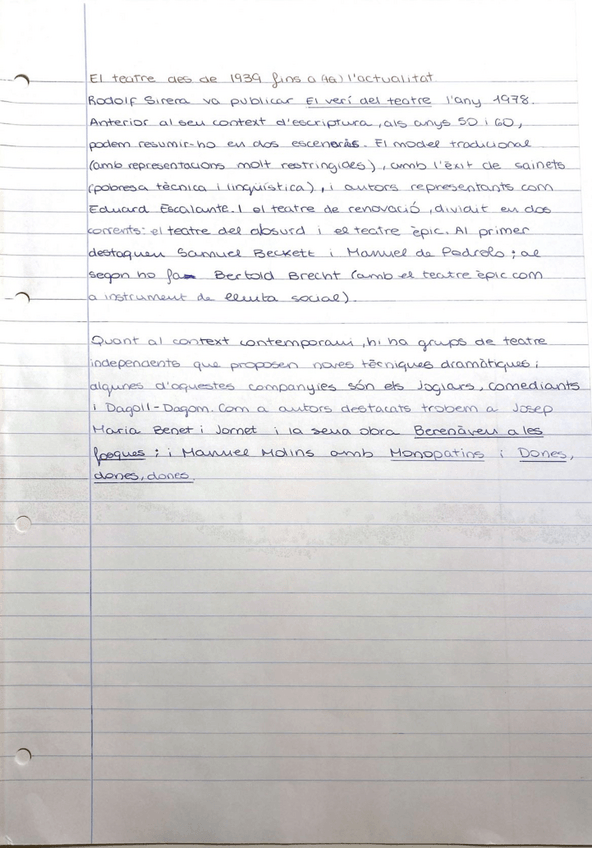 El teatre des de 1939 fins a (a) l'actualitat
Rodolf Sirera va publicar El verí del teatre l'any 1978.
Anterior al seu context d'escriptura, als anys 50 i 60,
podem resumir-ho en dos escenaris. El model tradicional
(amb representacions molt restringides), amb l'èxit de sainets
(pobresa tècnica i lingüística), i autors representants com
Eduard Escalante. I el teatre de renovació, dividit en dos
corrents: el teatre del absurd i el teatre èpic. Al primer
destaquen Samuel Beckett i Manuel de Pedrolo; al
segon ho fa Bertold Brecht (amb el teatre èpic com
a instrument de lluita social).
Quant al context contemporani, hi ha grups de teatre
independents que proposen noves tècniques dramàtiques;
algunes d'aquestes companyies són els Joglars, comediants
i Dagoll-Dagom. Com a autors destacats trobem a Josep
Maria Benet i Jornet i la seua obra Berenàveu a les
fosques; i Manuel Molins amb Monopatins i Dones,
dones, dones.